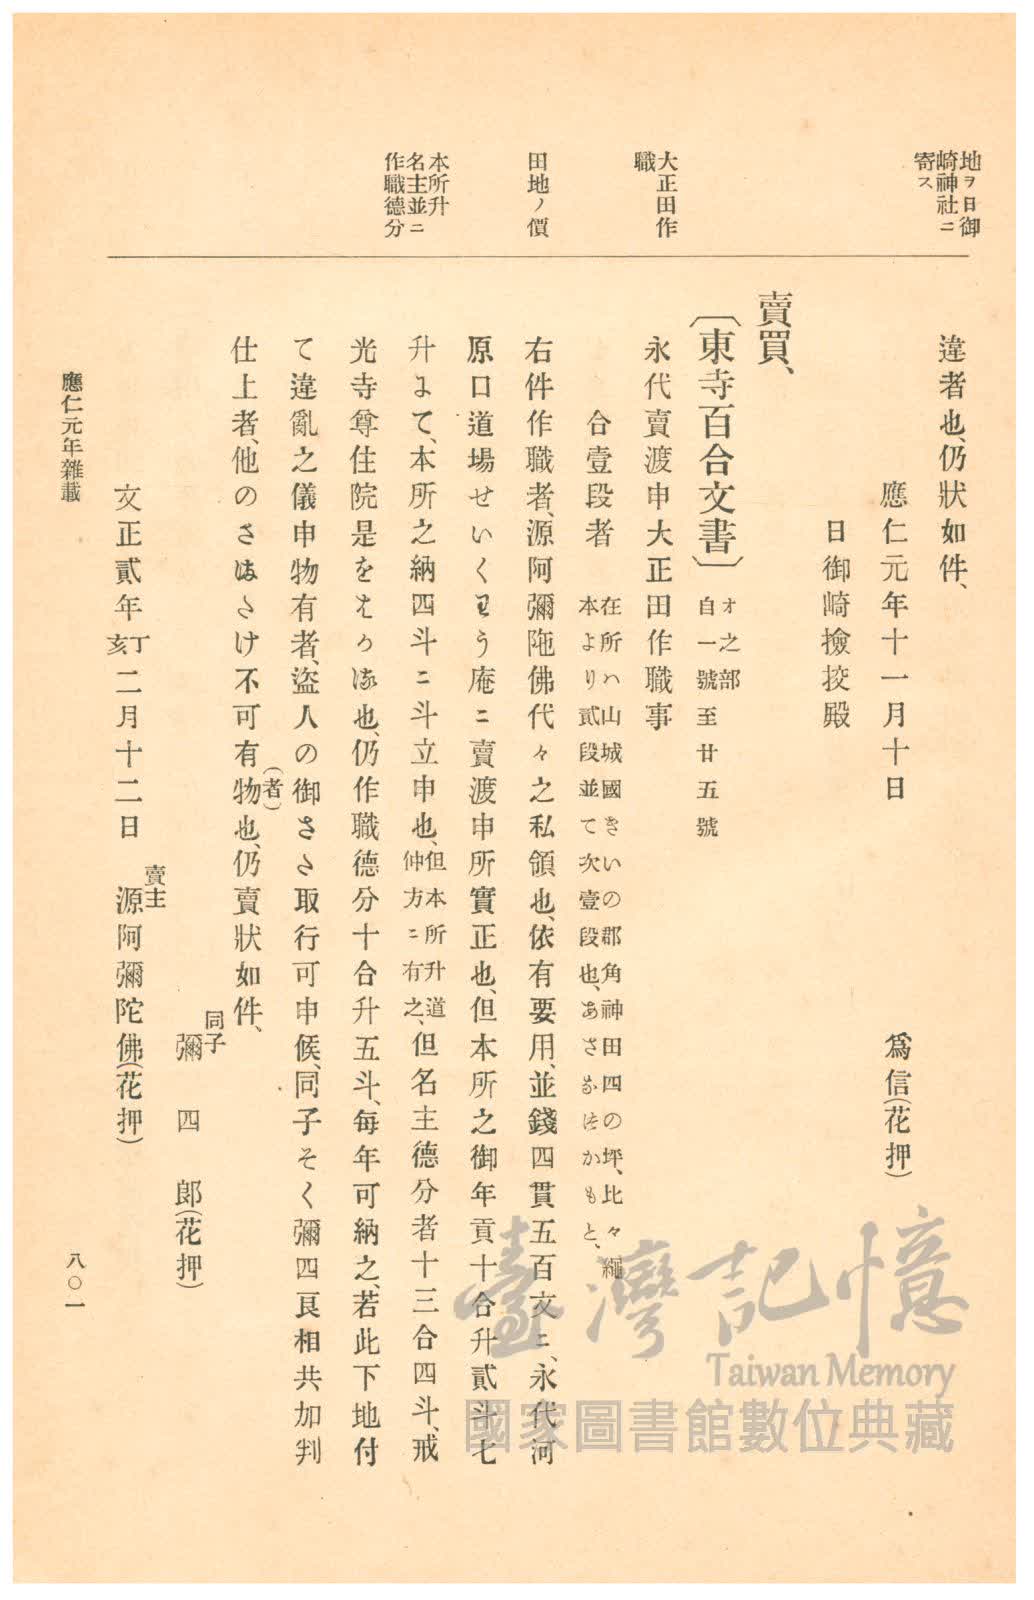 地ヲ日御
崎神社ニ
寄ス
大正田作
職
田地ノ價
本所升
名主並ニ
作職德分
違者也、仍狀如件、
應仁元年十一月十日　爲信(花押)
日御崎撿挍殿
賣買、
〔東寺百合文書〕オ之部
自一號至廿五號
永代賣渡申大正田作職事
合壹段者在所ハ山城國きいの郡角神田四の坪、比々繩
本より貳段並て次壹段也、あさなはかもと、
右件作職者、源阿彌陁佛代々之私領也、依有要用、並錢四貫五百文ニ、永代河
原口道場せいくわう庵ニ賣渡申所實正也、但本所之御年貢十合升貳斗七
升まて、本所之納四斗ニ斗立申也、但本所升道
仲方ニ有之、但名主德分者十三合四斗、戒
光寺尊住院是をはからる也、仍作職德分十合升五斗、每年可納之、若此下地付
て違亂之儀申物有者、盜人の御さた取行可申候、同子そく彌四良相共加判
仕上者、他のさまたけ不可有物(者)也、仍賣狀如件、
同子
彌四郎(花押)
文正貳年丁
亥二月十二日　賣主
源阿彌陀佛(花押)
應仁元年雜載
八〇一
臺灣記憶
Taiwan Memory
國家圖書館數位典藏